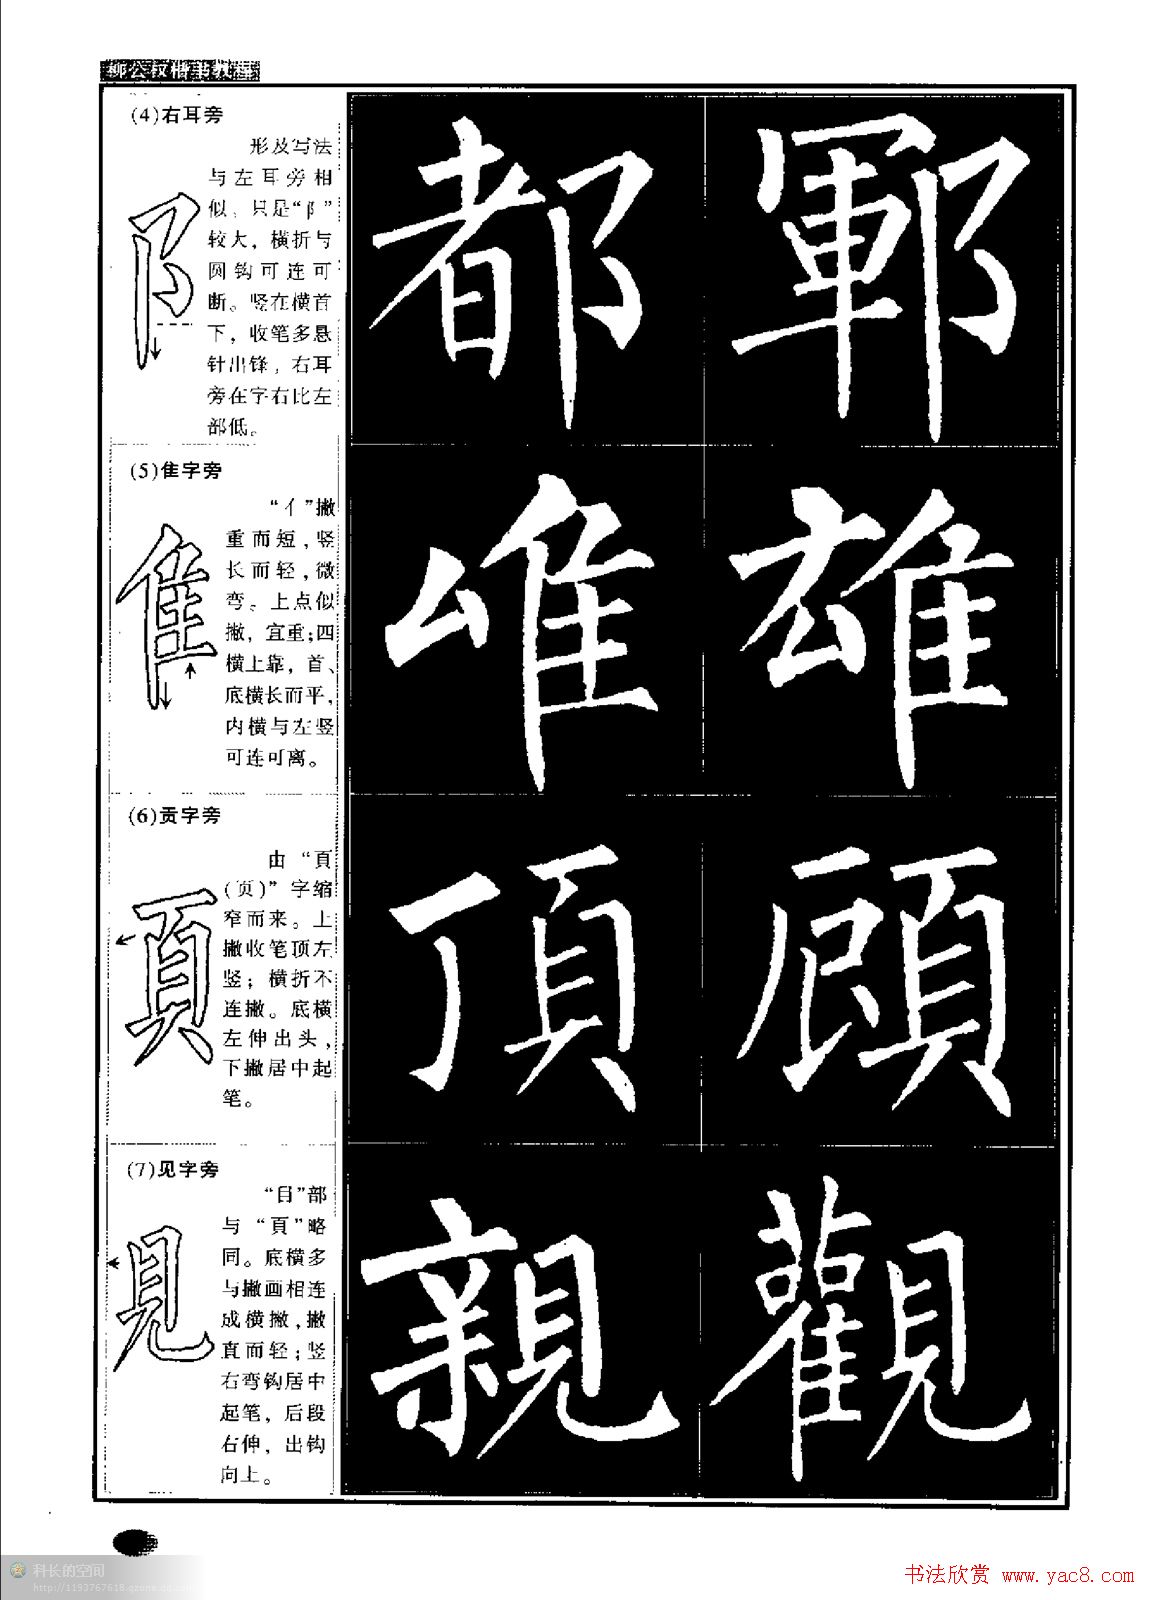 柳公权楷书教程
(4)右耳旁
形及写法
与左耳旁相
似，只是“阝”
较大，横折与
圆钩可连可
断。竖在横首
下，收笔多悬
针出锋，右耳
旁在字右比左
部低。
都 鄆
(5)隹字旁
“亻”撇
重而短，竖
长而轻，微
弯。上点似
撇，宜重；四
横上靠，首、
底横长而平，
内横与左竖
可连可离。
隹
唯 雄
(6)贡字旁
由“頁
(页)”字缩
窄而来。上
撇收笔顶左
竖；横折不
连撇。底横
左伸出头，
下撇居中起
笔。
頁
頂 顧
(7)见字旁
“目”部
与“頁”略
同。底横多
与撇画相连
成横撇，撇
直而轻；竖
右弯钩居中
起笔，后段
右伸，出钩
向上。
見
親 觀
科长的空间
http://1193767618.qzone.qq.com
书法欣赏 www.yac8.com